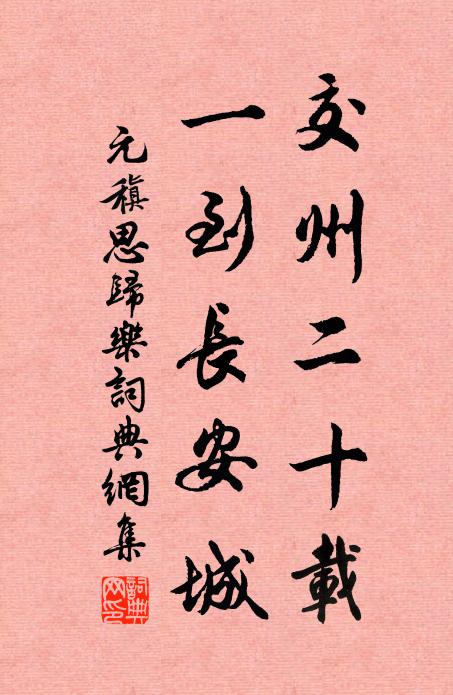 交州二十載
一到長安城
元稹思歸樂詞典網集
詞典
网印